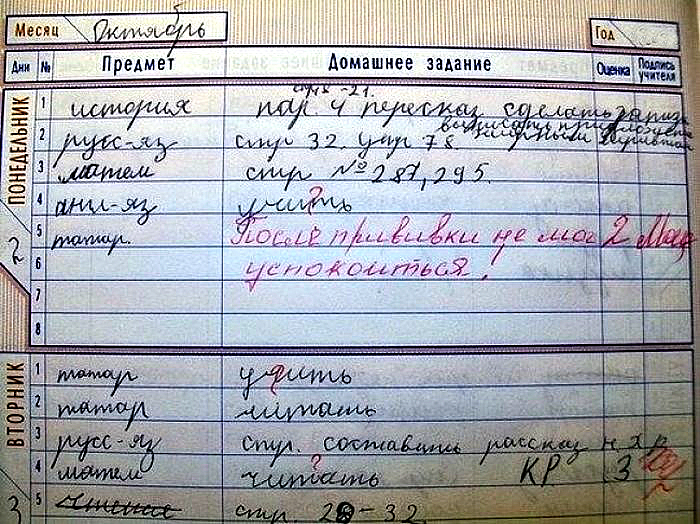 Месяц Октябрь Год
Дни № Предмет Домашнее задание Оценка Подпись учителя
ПОНЕДЕЛЬНИК 2
стр -21.
1 история пар. 4 пересказ сделать
2 русс-яз стр 32. упр 78
3 матем стр № 287, 295.
4 англ-яз учить ?
5 татар. После прививки не мог 2
6 успокоиться!
7
8
ВТОРНИК 3
1 татар учить
2 татар читать
3 русс-яз стр. составить рассказ н.
4 матем читать ? КР 3
5 чтение стр. 28-32.